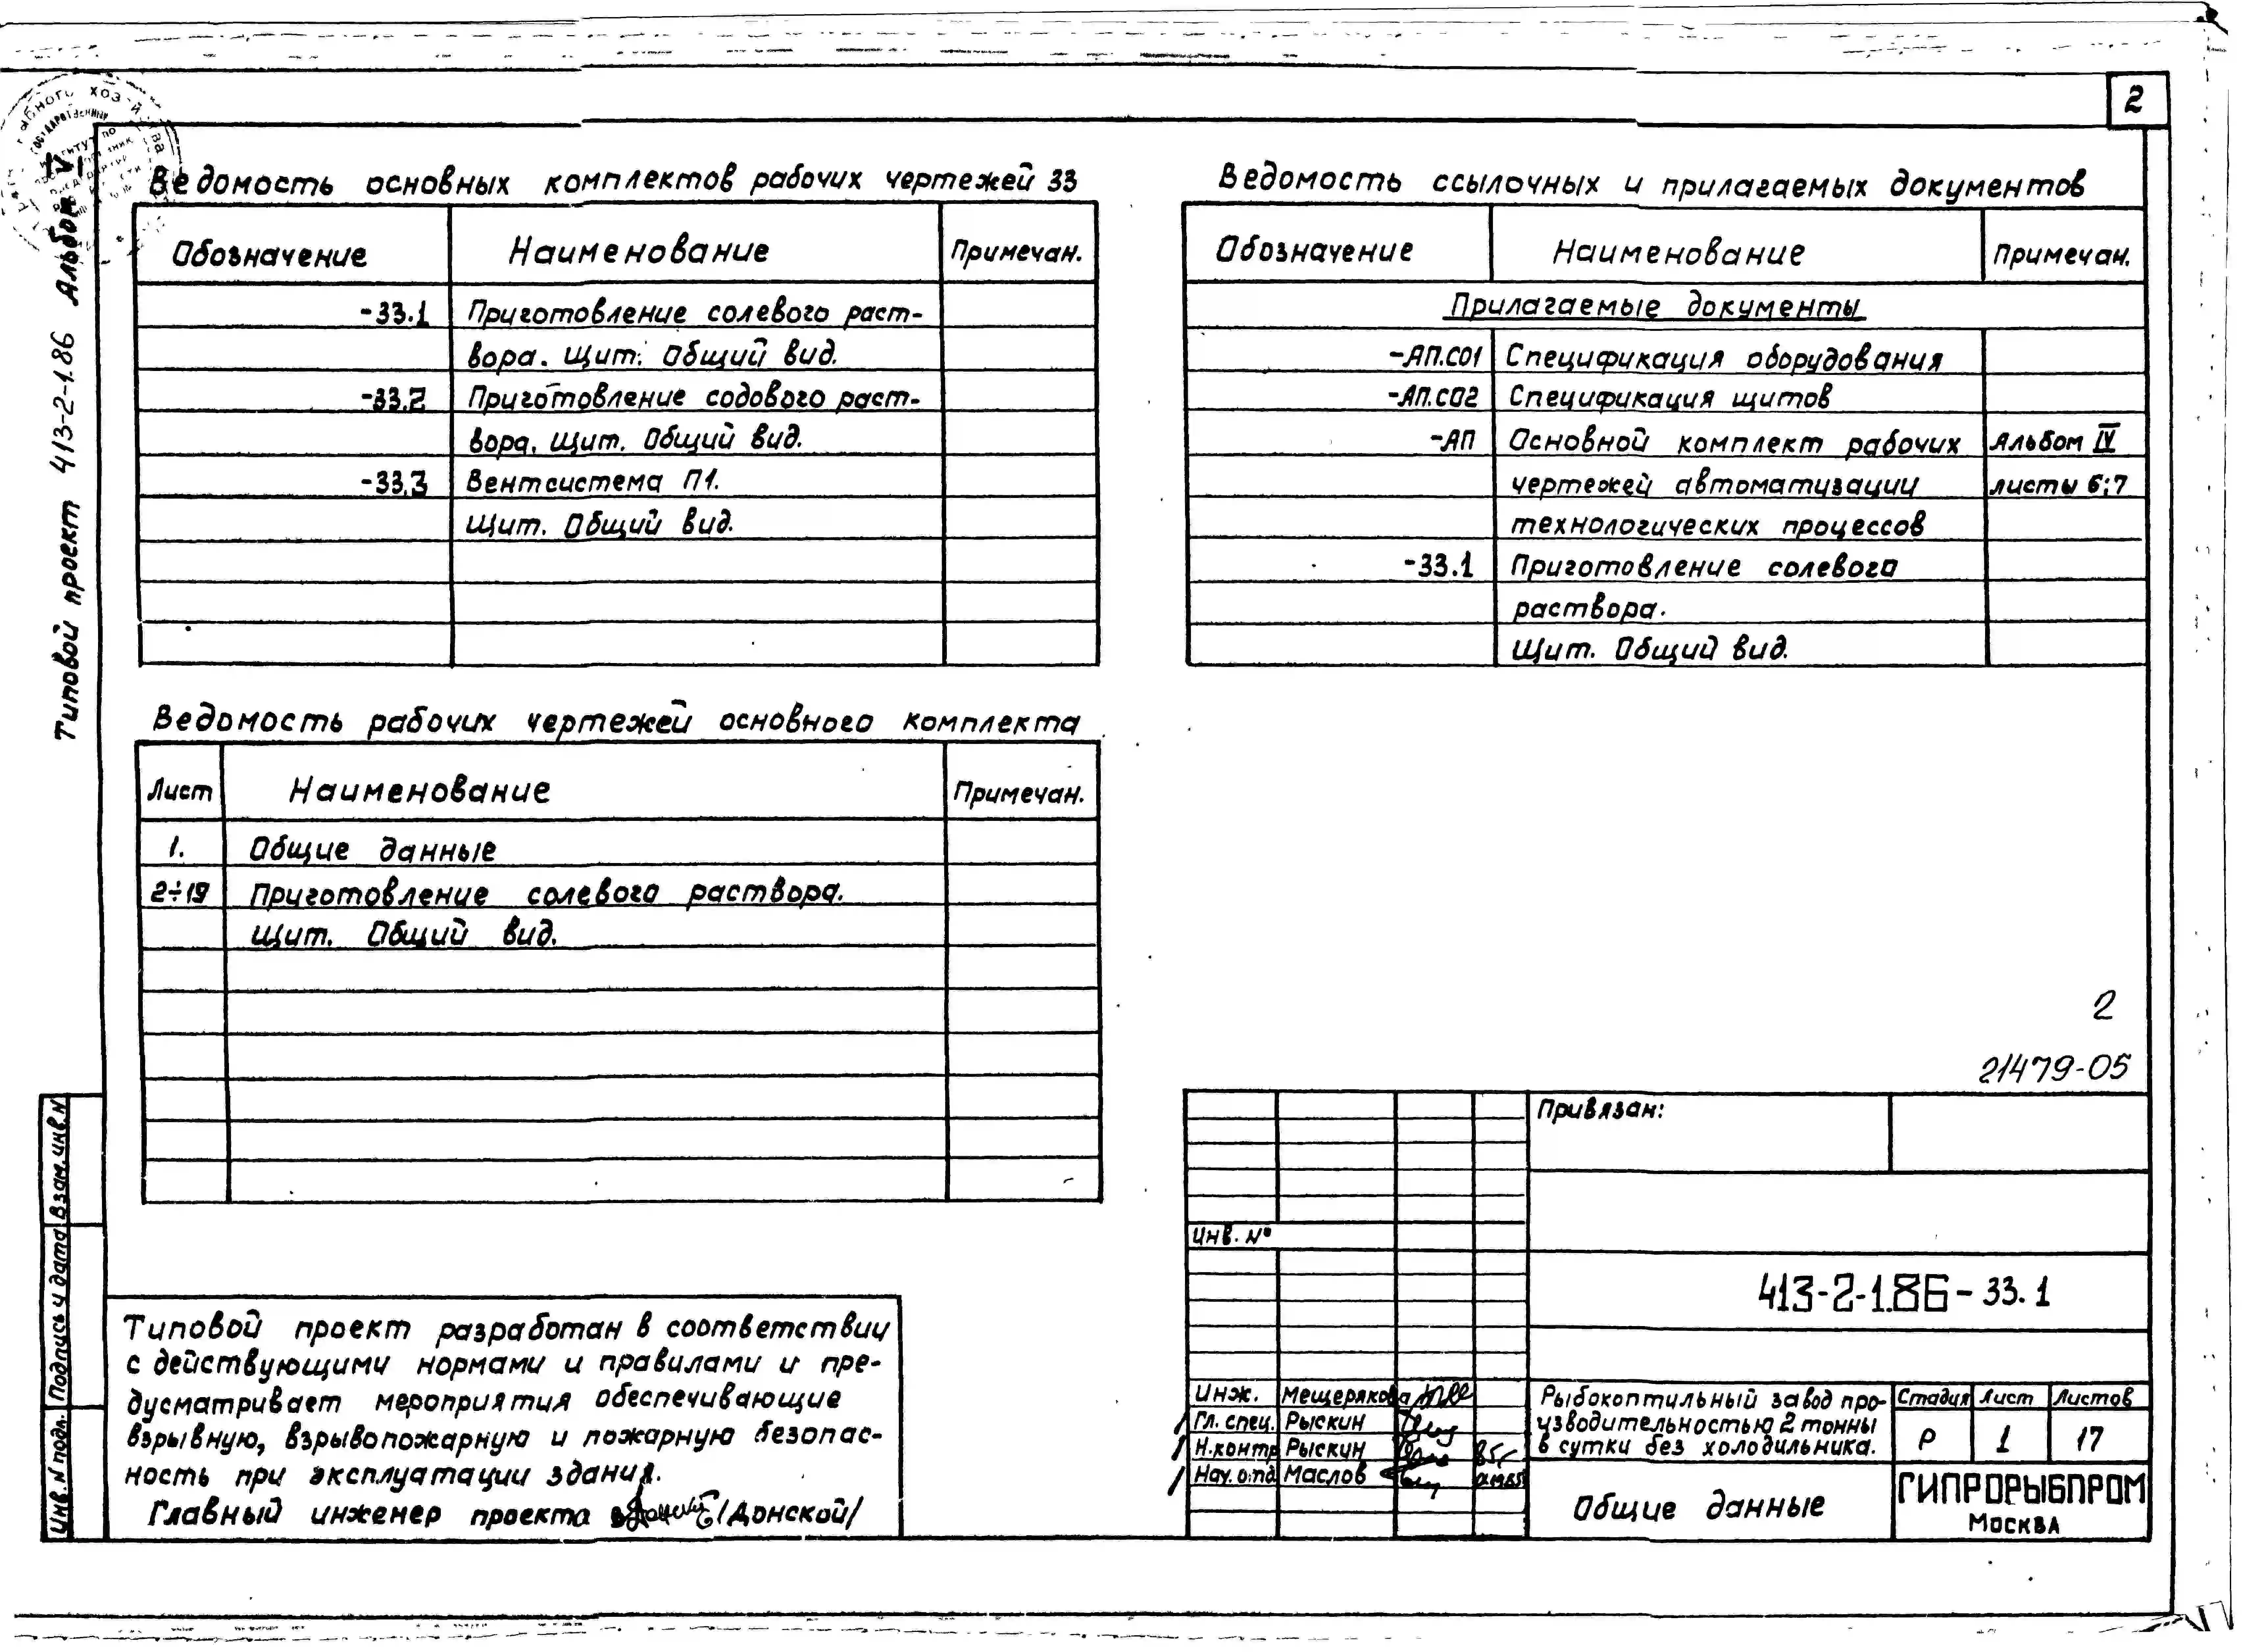 2
Типовой проект 413-2-1.86 Альбом V
Ведомость основных комплектов рабочих чертежей 33
Обозначение Наименование Примечан.
-33.1 Приготовление солевого раст-
вора. Щит. Общий вид.
-33.2 Приготовление содового раст-
вора. Щит. Общий вид.
-33.3 Вентсистема П1.
Щит. Общий вид.
Ведомость рабочих чертежей основного комплекта
Лист Наименование Примечан.
1. Общие данные
2÷19 Приготовление солевого раствора.
Щит. Общий вид.
Ведомость ссылочных и прилагаемых документов
Обозначение Наименование Примечан.
Прилагаемые документы
-АП.СО1 Спецификация оборудования
-АП.СО2 Спецификация щитов
-АП Основной комплект рабочих Альбом IV
чертежей автоматизации листы 6;7
технологических процессов
-33.1 Приготовление солевого
раствора.
Щит. Общий вид.
2
21479-05
Типовой проект разработан в соответствии
с действующими нормами и правилами и пре-
дусматривает мероприятия обеспечивающие
взрывную, взрывопожарную и пожарную безопас-
ность при эксплуатации здания.
Главный инженер проекта /Донской/
Взам.инв.N
Подпись и дата
Инв.N подл.
Привязан:
Инв. №
413-2-1.86-33.1
Инж. Мещерякова
Гл. спец. Рыскин
Н.контр Рыскин
Нач.отд Маслов
Рыбокоптильный завод про-
изводительностью 2 тонны
в сутки без холодильника.
Стадия Лист Листов
Р 1 17
Общие данные
ГИПРОРЫБПРОМ
МОСКВА